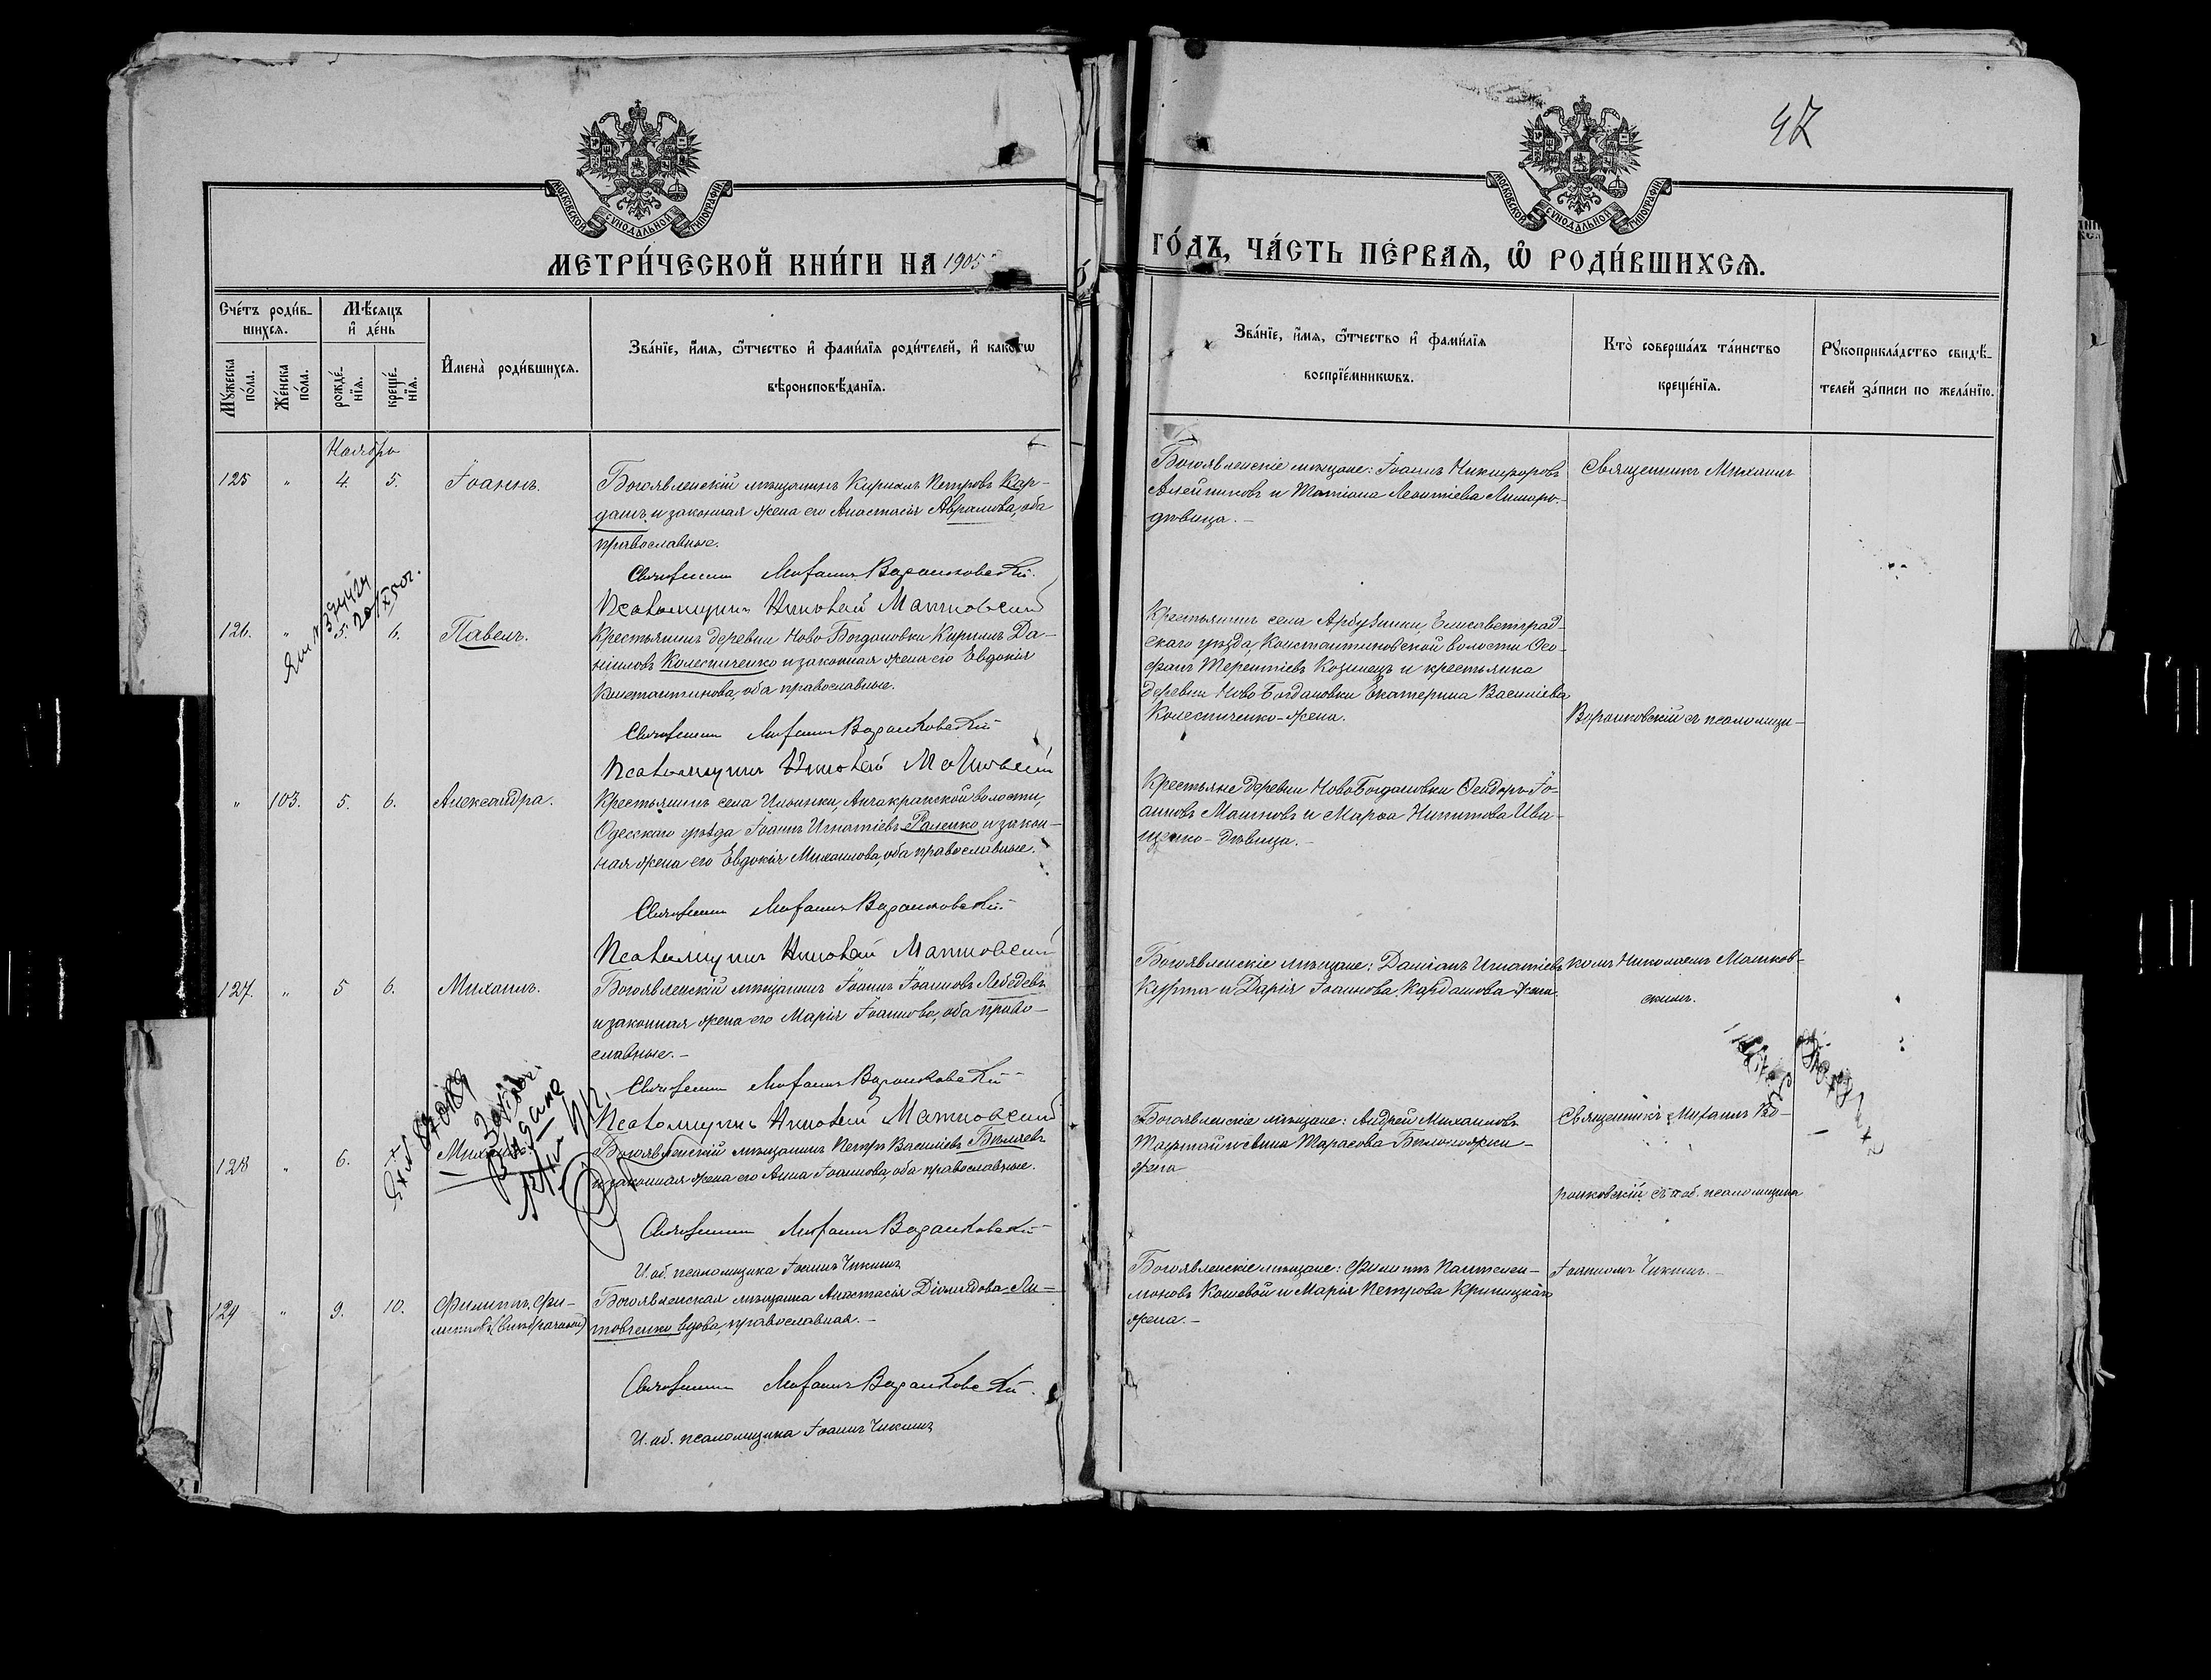 47
МОСКОВСКОЙ СѴНОДАЛЬНОЙ ТИПОГРАФІИ
МОСКОВСКОЙ СѴНОДАЛЬНОЙ ТИПОГРАФІИ
МЕТРИ́ЧЕСКОЙ КНИ́ГИ НА 1905
ГО́ДЪ, ЧА́СТЬ ПЕ́РВАѦ, Ѿ РОДИ́ВШИХСѦ.
Сче́тъ роди́в-
шихсѧ.
Мѣ́сѧцъ
и҆ де́нь
Мꙋ́жеска
по́ла.
Же́нска
по́ла.
рожде́-
нїѧ.
креще́-
нїѧ.
И҆мена̀ роди́вшихсѧ.
Зва́нїе, и҆́мѧ, ѻ҆́тчество и҆ фами́лїѧ роди́телей, и҆ како́гѡ
вѣроисповѣ́данїѧ.
Зва́нїе, и҆́мѧ, ѻ҆́тчество и҆ фами́лїѧ
воспрїе́мникѡвъ.
Кто̀ соверша́лъ та́инство
креще́нїѧ.
Рꙋкоприкла́дство свидѣ́-
телей за́писи по жела́нїю.
Ноябрь
125 " 4. 5. Іоаннъ.
Богоявленскій мѣщанинъ Кириллъ Петровъ Кар-
дашъ и законная жена его Анастасія Аврамова, оба
православные.
Священникъ Михаилъ Воронковскій.
Псаломщикъ Николай Матковскій
Богоявленскіе мѣщане: Іоаннъ Никифоровъ
Алейниковъ и Татіана Леонтіева
дѣвица. –
Священникъ Михаилъ
126. " 5. 6. Павелъ.
Крестьянинъ деревни Ново-Богдановки Кириллъ Да-
ніиловъ Колесниченко и законная жена его Евдокія
Константинова, оба православные.
Священникъ Михаилъ Воронковскій
Псаломщикъ Николай Матковскій
Крестьянинъ села Арбузинки, Елисаветград-
скаго уѣзда, Константиновской волости Ѳео-
фанъ Терентіевъ Козинецъ и крестьянка
деревни Ново-Богдановки Екатерина Василіева
Колесниченко-жена.
Воронковскій съ псаломщи-
" 103. 5. 6. Александра.
Крестьянинъ села Ильинки, Анчакракской волости,
Одесскаго уѣзда Іоаннъ Игнатіевъ Фаленко и закон-
ная жена его Евдокія Михаилова, оба православные.
Священникъ Михаилъ Воронковскій.
Псаломщикъ Николай Матковскій
Крестьяне деревни Ново-Богдановки Ѳеодоръ Іо-
анновъ Машковъ и Марѳа Никитова Ива-
щенко - дѣвица. –
127. " 5 6. Михаилъ.
Богоявленскій мѣщанинъ Іоаннъ Іоанновъ Лебедевъ
и законная жена его Марія Іоаннова, оба право-
славные. –
Священникъ Михаилъ Воронковскій
Псаломщикъ Николай Матковскій
Богоявленскіе мѣщане: Даміанъ Игнатіевъ
Курта и Дарія Іоаннова Кардашова жена.
комъ Николаемъ Матков-
скимъ.
128 " 6. Михаилъ.
Богоявленскій мѣщанинъ Петръ Василіевъ Бѣляевъ
и законная жена его Анна Іоаннова, оба православные.
Священникъ Михаилъ Воронковскій
И. об. псаломщика Іоаннъ Чикинъ
Богоявленскіе мѣщане: Андрей Михаиловъ
Тарасова
жена
Священникъ Михаилъ Во-
ронковскій съ и. об. псаломщика
129 " 9. 10. Филиппъ, Фи-
липповъ (внѣбрачный)
Богоявленская мѣщанка Анастасія Діомидова Ли-
товченко вдова, православная. –
Священникъ Михаилъ Воронковскій.
И. об. псаломщика Іоаннъ Чикинъ
Богоявленскіе мѣщане: Филиппъ Пантелеи-
моновъ Кошевой и Марія Петрова Криницкая
жена. –
Іоанномъ Чикинъ. –